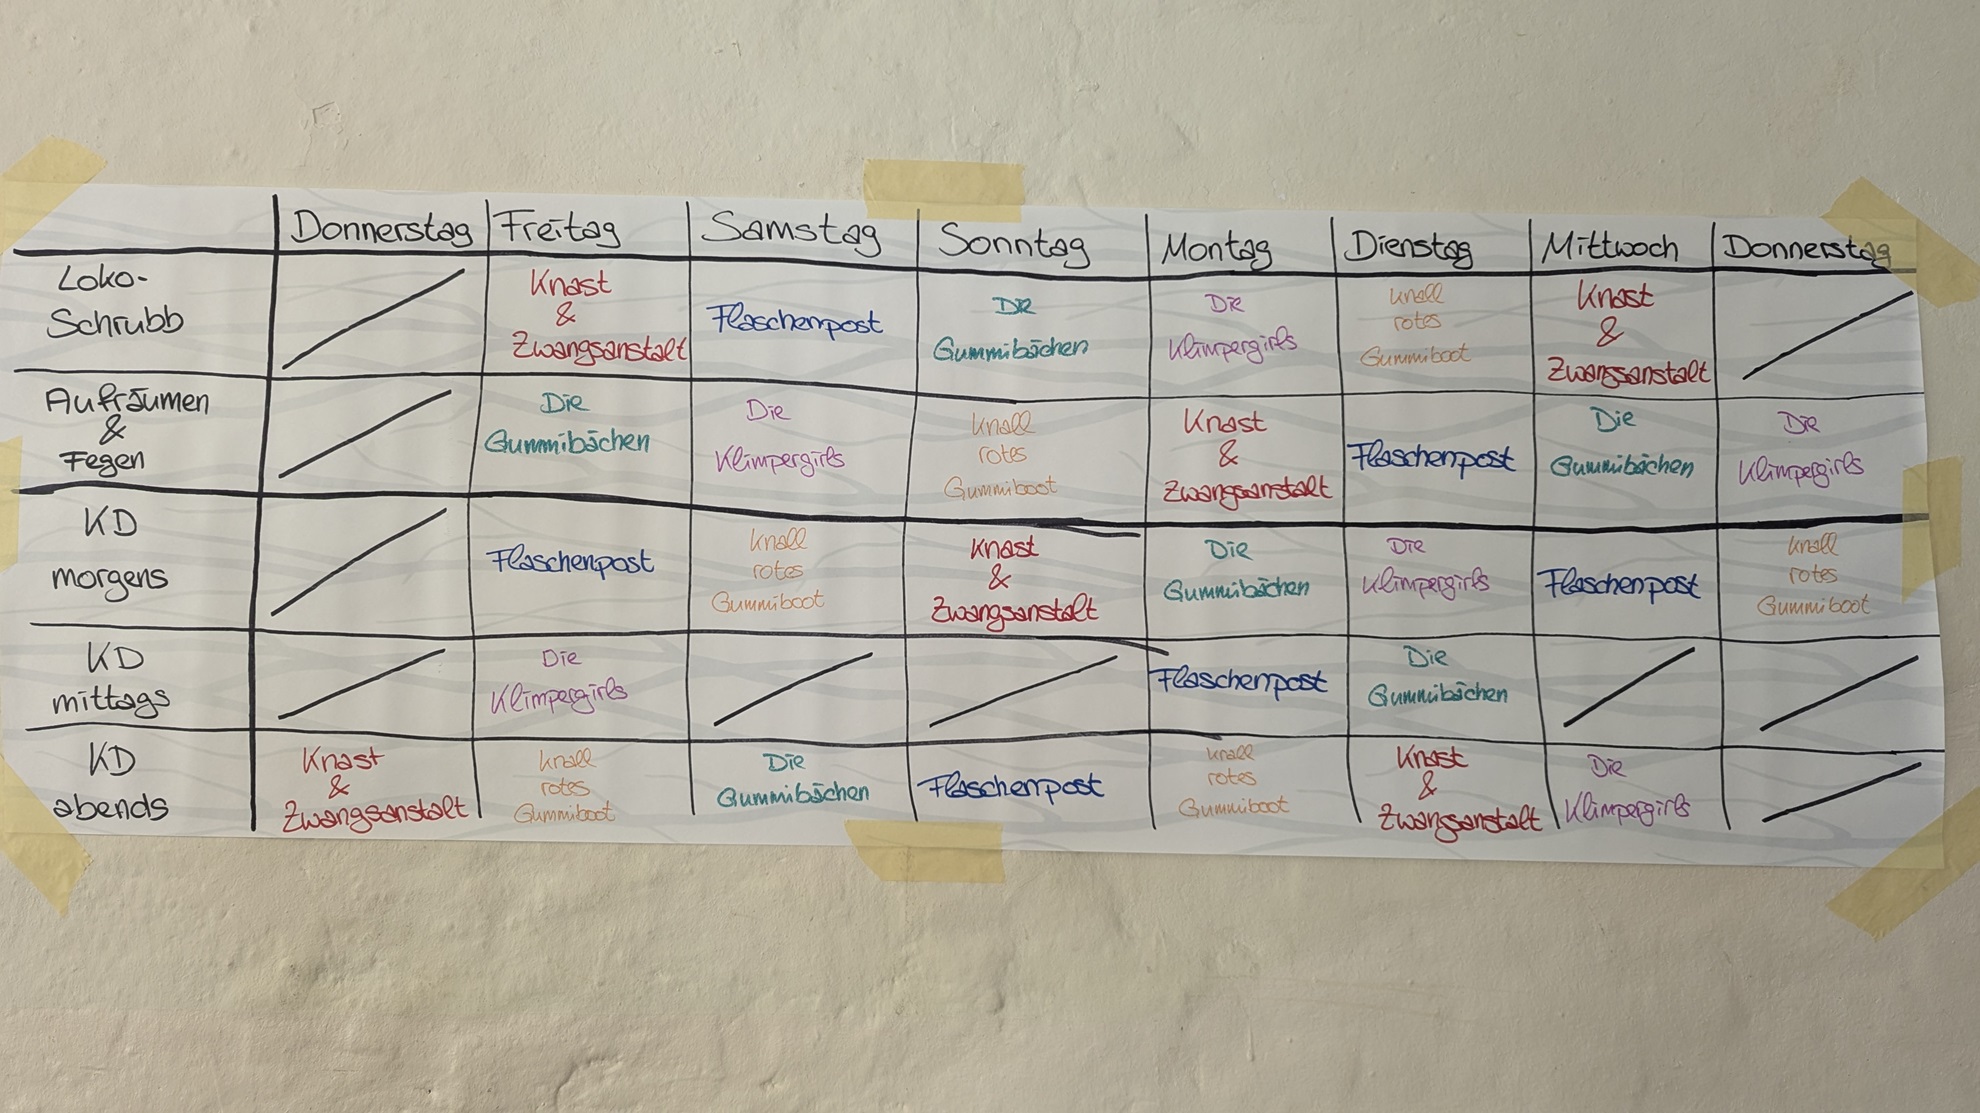 Donnerstag Freitag Samstag Sonntag Montag Dienstag Mittwoch Donnerstag
Loko-
Schrubb
Knast
&
Zwangsanstalt
Flaschenpost
Die
Gummibächen
Die
Klimpergirls
Knall
rotes
Gummiboot
Knast
&
Zwangsanstalt
Aufräumen
&
Fegen
Die
Gummibächen
Die
Klimpergirls
Knall
rotes
Gummiboot
Knast
&
Zwangsanstalt
Flaschenpost
Die
Gummibächen
Die
Klimpergirls
KD
morgens
Flaschenpost
Knall
rotes
Gummiboot
Knast
&
Zwangsanstalt
Die
Gummibächen
Die
Klimpergirls
Flaschenpost
Knall
rotes
Gummiboot
KD
mittags
Die
Klimpergirls
Flaschenpost
Die
Gummibächen
KD
abends
Knast
&
Zwangsanstalt
Knall
rotes
Gummiboot
Die
Gummibächen
Flaschenpost
Knall
rotes
Gummiboot
Knast
&
Zwangsanstalt
Die
Klimpergirls